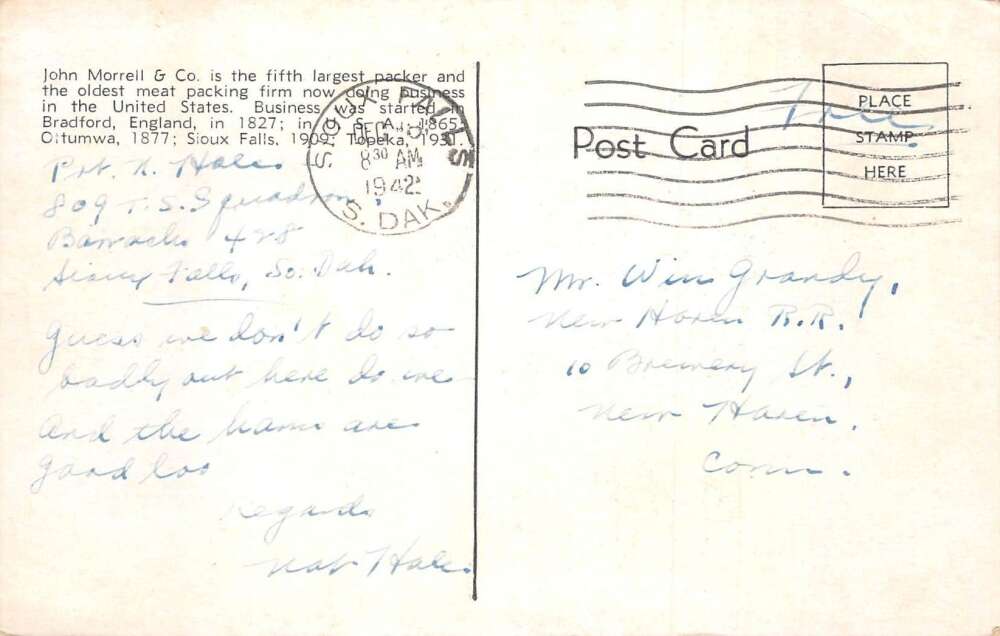 John Morrell & Co. is the fifth largest packer and
the oldest meat packing firm now doing business
in the United States. Business was started in
Bradford, England, in 1827; in U. S. A., 1865;
Ottumwa, 1877; Sioux Falls, 1909; Topeka, 1931.
SIOUX FALLS
DEC
8 30 AM
1942
S. DAK.
Pvt. N. Hales
809 T. S. Squadron
Barracks 428
Sioux Falls, So. Dak.
Guess we don't do so
badly out here do we
and the hams are
good too
Regards
Nat Hales
Post Card
Free
PLACE
STAMP
HERE
Mr. Win Grandy,
New Haven R.R.
10 Brewery St.,
New Haven,
Conn.